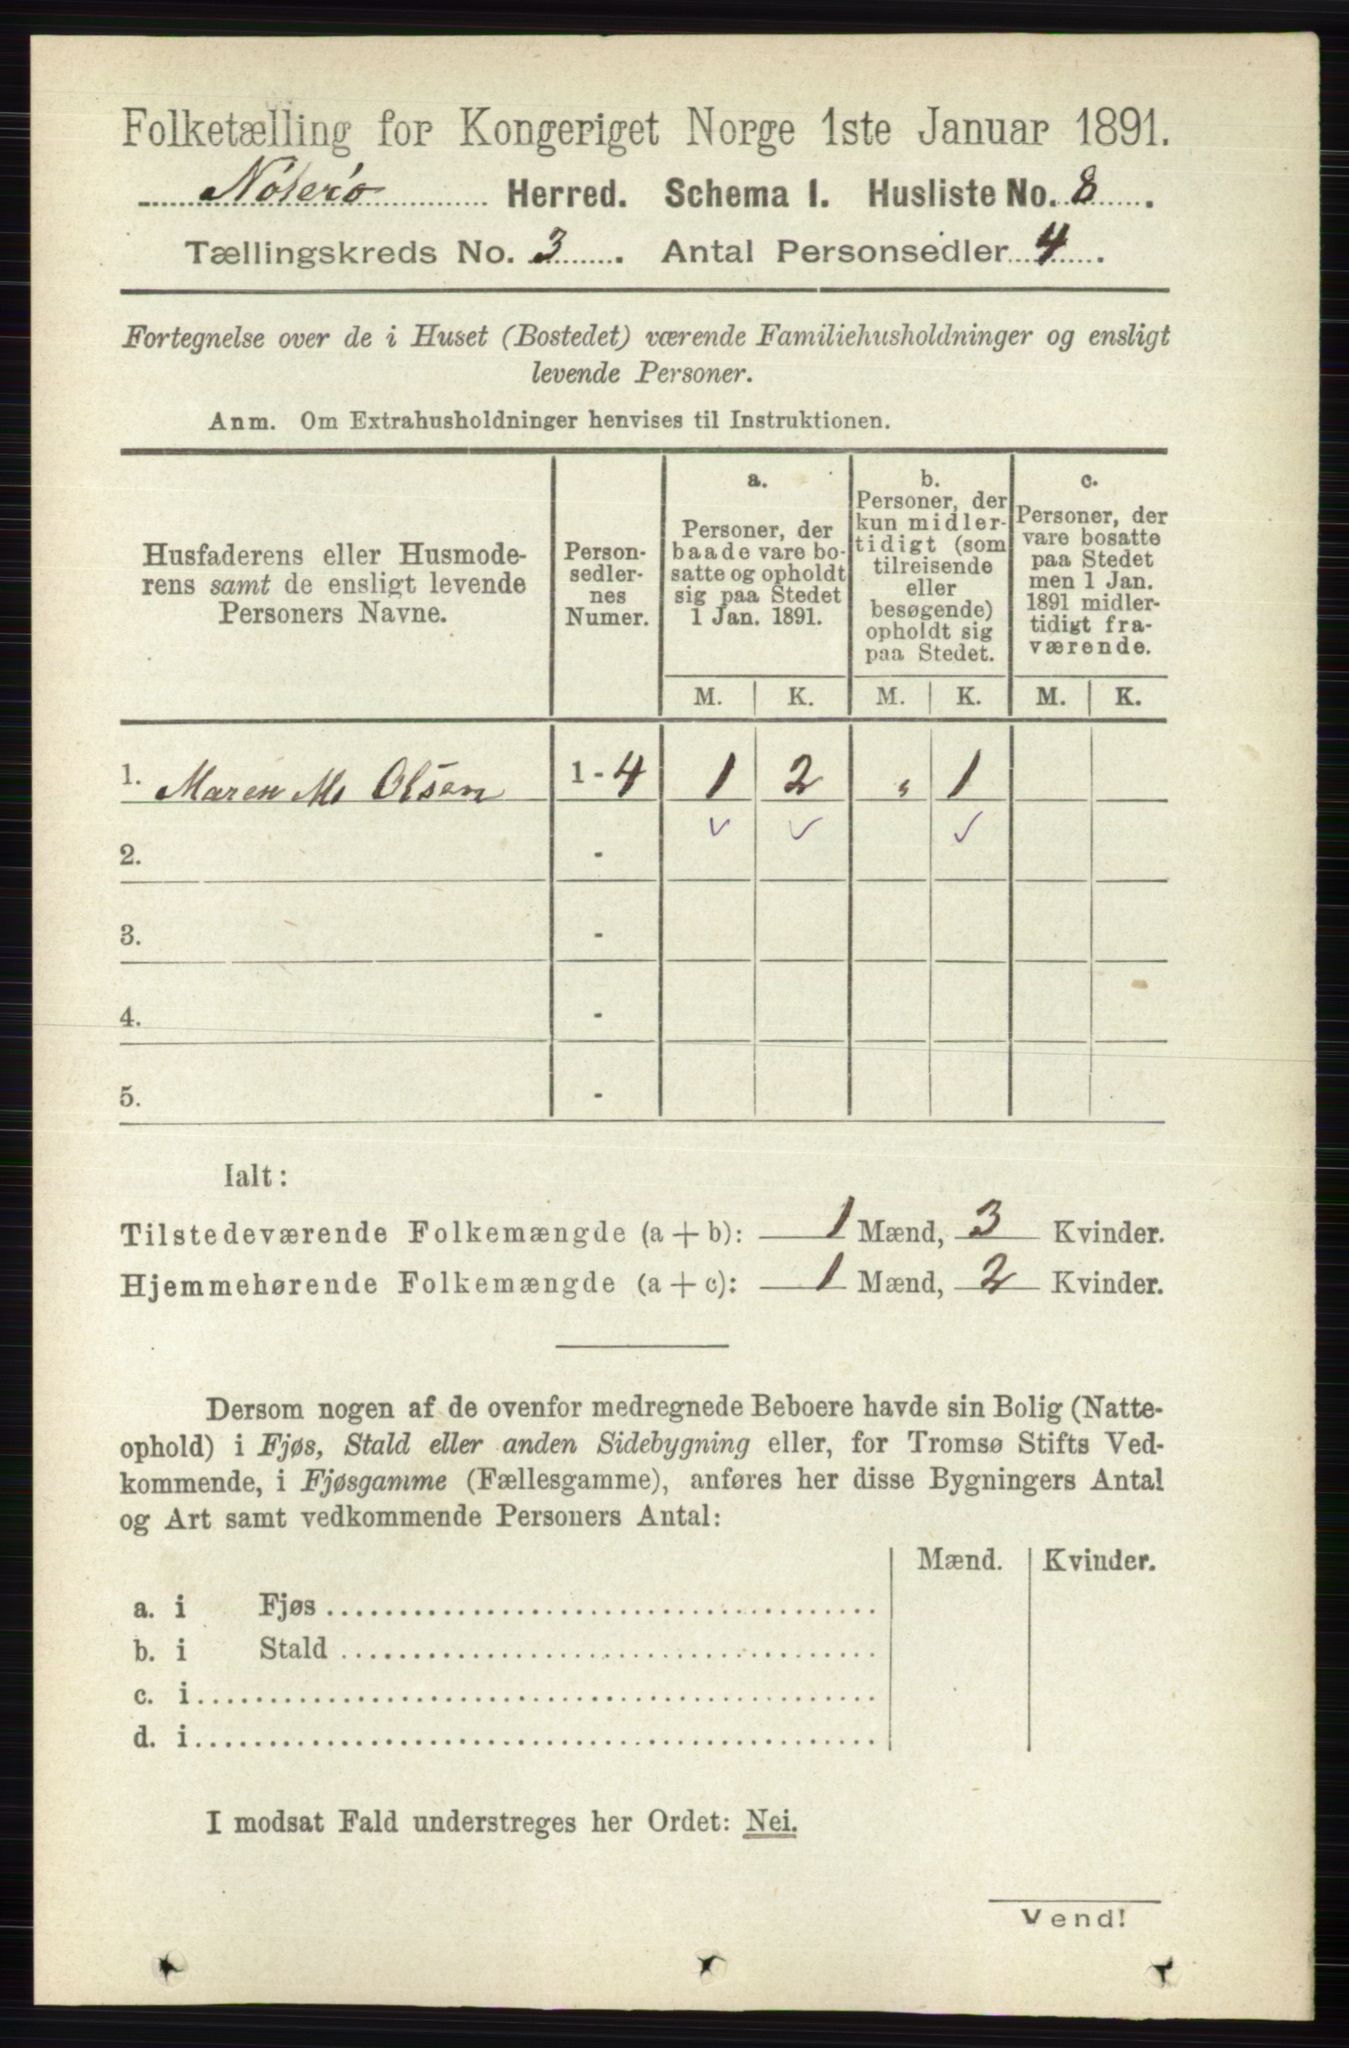 Folketælling for Kongeriget Norge 1ste Januar 1891.
Nøterø Herred. Schema I. Husliste No. 8.
Tællingskreds No. 3. Antal Personsedler 4.
Fortegnelse over de i Huset (Bostedet) værende Familiehusholdninger og ensligt
levende Personer.
Anm. Om Extrahusholdninger henvises til Instruktionen.
Husfaderens eller Husmode-
rens samt de ensligt levende
Personers Navne.
Person-
sedler-
nes
Numer.
a.
Personer, der
baade vare bo-
satte og opholdt
sig paa Stedet
1 Jan. 1891.
b.
Personer, der
kun midler-
tidigt (som
tilreisende
eller
besøgende)
opholdt sig
paa Stedet.
c.
Personer, der
vare bosatte
paa Stedet
men 1 Jan.
1891 midler-
tidigt fra-
værende.
M. K. M. K. M. K.
1. Maren M. Olsen 1 - 4 1 2 " 1
2. -
3. -
4. -
5. -
Ialt:
Tilstedeværende Folkemængde (a + b): 1 Mænd, 3 Kvinder.
Hjemmehørende Folkemængde (a + c): 1 Mænd, 2 Kvinder.
Dersom nogen af de ovenfor medregnede Beboere havde sin Bolig (Natte-
ophold) i Fjøs, Stald eller anden Sidebygning eller, for Tromsø Stifts Ved-
kommende, i Fjøsgamme (Fællesgamme), anføres her disse Bygningers Antal
og Art samt vedkommende Personers Antal:
Mænd. Kvinder.
a. i Fjøs
b. i Stald
c. i
d. i
I modsat Fald understreges her Ordet: Nei.
Vend!